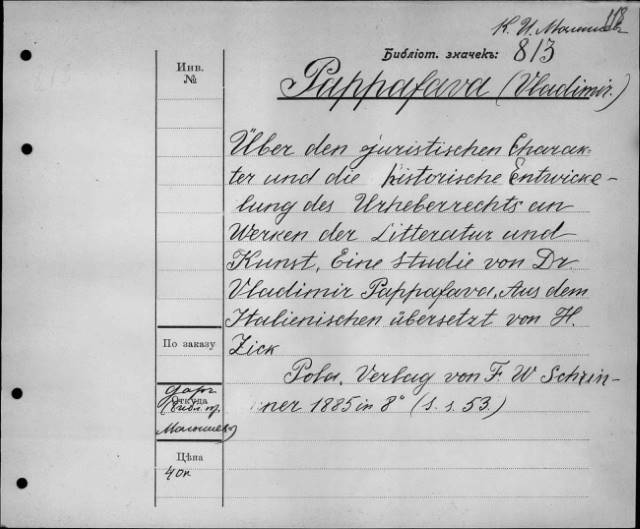 118
К. И. Малышев
Библіот. значекъ: 813
Инв.
№
Pappafava (Vladimir.)
Über den juristischen Charak-
ter und die historische Entwicke-
lung des Urheberrechts an
Werken der Litteratur und
Kunst, Eine Studie von Dr
Vladimir Pappafava, Aus dem
Italienischen übersetzt von H.
По заказу
Zick
Pola, Verlag von F. W Schrin-
ner 1885 in 8° (s. s. 53.)
даръ
Откуда
Малышева
Цѣна
40к